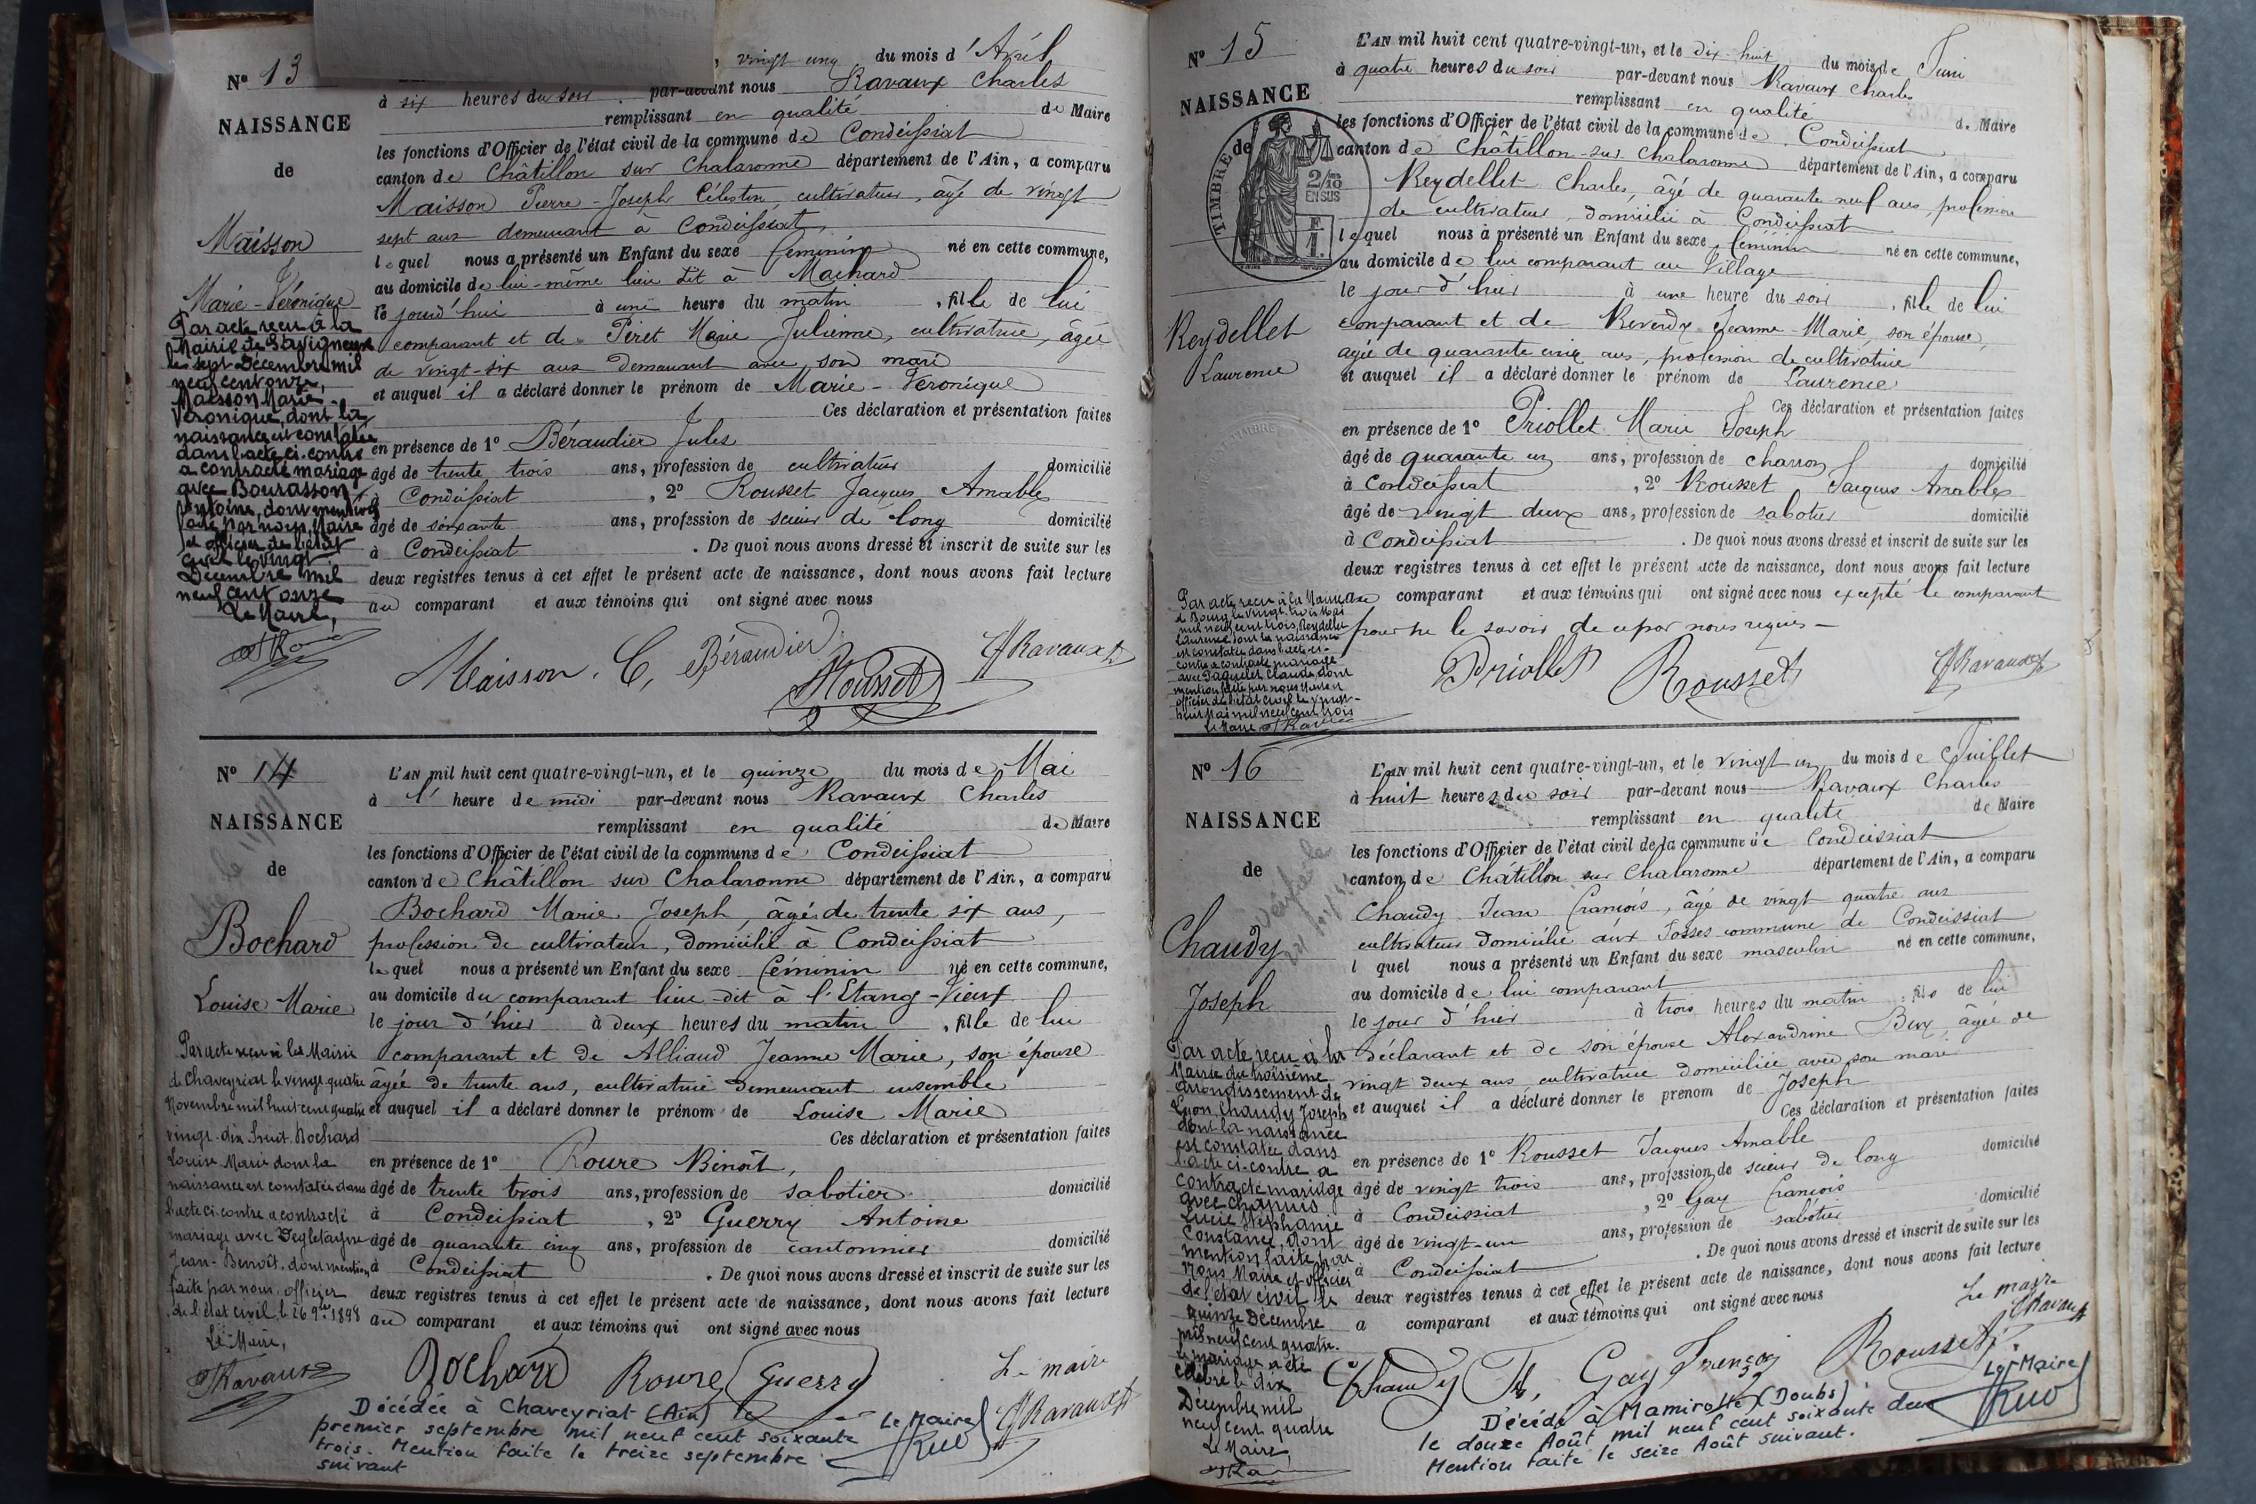 N° 13
vingt cinq du mois d'Avril
à six heures du soir par-devant nous Ravaux Charles
remplissant en qualité de Maire
les fonctions d'Officier de l'état civil de la commune de Condeissiat
canton de Châtillon sur Chalaronne département de l'Ain, a comparu
Maisson Pierre-Joseph Célestin, cultivateur, âgé de vingt
sept ans demeurant à Condeissiat,
lequel nous a présenté un Enfant du sexe féminin né en cette commune,
au domicile de lui-même lieu dit à Machard
le jourd'hui à une heure du matin, fille de lui
comparant et de Péret Marie Julienne, cultivatrice, âgée
de vingt-six ans demeurant avec son mari
et auquel il a déclaré donner le prénom de Marie-Véronique
Ces déclaration et présentation faites
en présence de 1° Béraudier Jules
âgé de trente trois ans, profession de cultivateur domicilié
à Condeissiat, 2° Rousset Jacques Amable
âgé de soixante ans, profession de scieur de long domicilié
à Condeissiat. De quoi nous avons dressé et inscrit de suite sur les
deux registres tenus à cet effet le présent acte de naissance, dont nous avons fait lecture
au comparant et aux témoins qui ont signé avec nous
Maisson. C, Béraudier Rousset Ravaux
NAISSANCE
de
Maisson
Marie-Véronique
Par acte reçu à la
Mairie de Savigneux
le sept Décembre mil
neuf cent onze,
Maisson Marie-
Véronique, dont la
naissance est constatée
dans l'acte ci-contre
a contracté mariage
avec Bourasson
Antoine, dont mention
faite par nous, Maire
et officier de l'état
civil le vingt
Décembre mil
neuf cent onze
Le Maire,
N° 14
NAISSANCE
de
Bochard
Louise Marie
Par acte reçu à la Mairie
de Chaveyriat le vingt quatre
Novembre mil huit cent quatre
vingt-dix huit Bochard
Louise Marie dont la
naissance est constatée dans
l'acte ci-contre a contracté
mariage avec Degletagne
Jean-Benoît, dont mention
faite par nous, officier
de l'état civil, le 26 9bre 1898
Le Maire,
Ravaux
L'AN mil huit cent quatre-vingt-un, et le quinze du mois de Mai
à l'heure de midi par-devant nous Ravaux Charles
remplissant en qualité de Maire
les fonctions d'Officier de l'état civil de la commune de Condeissiat
canton de Châtillon sur Chalaronne département de l'Ain, a comparu
Bochard Marie Joseph, âgé de trente six ans,
profession de cultivateur, domicilié à Condeissiat
lequel nous a présenté un Enfant du sexe féminin né en cette commune,
au domicile du comparant lieu-dit à l'Etang-Vieux
le jour d'hier à deux heures du matin, fille de lui
comparant et de Alliaud Jeanne Marie, son épouse
âgée de trente ans, cultivatrice demeurant ensemble
et auquel il a déclaré donner le prénom de Louise Marie
Ces déclaration et présentation faites
en présence de 1° Roure Benoît,
âgé de trente trois ans, profession de sabotier domicilié
à Condeissiat, 2° Guerry Antoine
âgé de quarante cinq ans, profession de cantonnier domicilié
à Condeissiat. De quoi nous avons dressé et inscrit de suite sur les
deux registres tenus à cet effet le présent acte de naissance, dont nous avons fait lecture
au comparant et aux témoins qui ont signé avec nous
Bochard Roure Guerry Le maire
Ravaux
Décédée à Chaveyriat (Ain) le
premier septembre mil neuf cent soixante
trois. Mention faite le treize septembre
suivant
Le Maire
N° 15
NAISSANCE
de
TIMBRE
2/10 EN SUS
F 1.
Reydellet
Laurence
Par acte reçu à la Mairie
de Bourg le vingt-trois Mai
mil neuf cent trois, Reydellet
Laurence dont la naissance
est constatée dans l'acte ci-
contre a contracté mariage
avec Paquelet Claude, dont
mention faite par nous Maire et
officier de l'état civil le vingt-
huit Mai mil neuf cent trois
Le Maire
L'AN mil huit cent quatre-vingt-un, et le dix huit du mois de Juin
à quatre heures du soir par-devant nous Ravaux Charles
remplissant en qualité de Maire
les fonctions d'Officier de l'état civil de la commune de Condeissiat
canton de Châtillon-sur-Chalaronne département de l'Ain, a comparu
Reydellet Charles, âgé de quarante neuf ans, profession
de cultivateur, domicilié à Condeissiat
lequel nous à présenté un Enfant du sexe féminin né en cette commune,
au domicile de lui comparant au Village
le jour d'hier à une heure du soir, fille de lui
comparant et de Reverdy Jeanne-Marie, son épouse,
âgée de quarante cinq ans, profession de cultivatrice
et auquel il a déclaré donner le prénom de Laurence
Ces déclaration et présentation faites
en présence de 1° Priollet Marie Joseph
âgé de quarante un ans, profession de charron domicilié
à Condeissiat, 2° Rousset Jacques Amable
âgé de vingt deux ans, profession de sabotier domicilié
à Condeissiat. De quoi nous avons dressé et inscrit de suite sur les
deux registres tenus à cet effet le présent acte de naissance, dont nous avons fait lecture
au comparant et aux témoins qui ont signé avec nous excepté le comparant
pour ne le savoir de ce par nous requis —
Priollet Rousset Ravaux
N° 16
NAISSANCE
de
Chaudy
Joseph
Par acte reçu à la
Mairie du troisième
arrondissement de
Lyon, Chaudy Joseph
dont la naissance
est constatée dans
l'acte ci-contre a
contracté mariage
avec Chapuis
Lucie Stéphanie
Constance, dont
mention faite par
nous Maire et officier
de l'état civil le
quinze Décembre
mil neuf cent quatre.
le mariage a été
célébré le dix
Décembre mil
neuf cent quatre
Le Maire
L'AN mil huit cent quatre-vingt-un, et le vingt un du mois de Juillet
à huit heures du soir par-devant nous Ravaux Charles
remplissant en qualité de Maire
les fonctions d'Officier de l'état civil de la commune de Condeissiat
canton de Châtillon sur Chalaronne département de l'Ain, a comparu
Chaudy Jean François, âgé de vingt quatre ans
cultivateur domicilié aux Fosses commune de Condeissiat
l quel nous a présenté un Enfant du sexe masculin né en cette commune,
au domicile de lui comparant
le jour d'hier à trois heures du matin, fils de lui
déclarant et de son épouse Alexandrine Bery, âgée de
vingt deux ans, cultivatrice domiciliée avec son mari
et auquel il a déclaré donner le prénom de Joseph
Ces déclaration et présentation faites
en présence de 1° Rousset Jacques Amable
âgé de vingt trois ans, profession de scieur de long domicilié
à Condeissiat, 2° Gay François
âgé de vingt-un ans, profession de sabotier domicilié
à Condeissiat. De quoi nous avons dressé et inscrit de suite sur les
deux registres tenus à cet effet le présent acte de naissance, dont nous avons fait lecture
a comparant et aux témoins qui ont signé avec nous
Le maire
Ravaux
Chaudy Gay François Rousset
Le Maire
Décédé à Mamirolle (Doubs)
le douze Août mil neuf cent soixante deux
Mention faite le seize Août suivant.